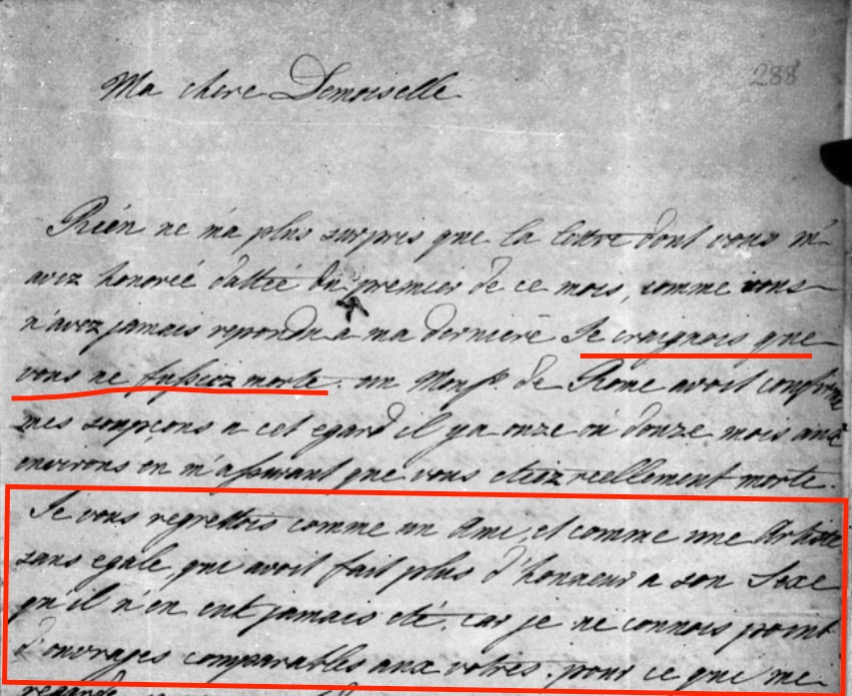 288
Ma chere Demoiselle
Rién ne m'a plus surpris que la lettre dont vous m'
avez honorée dattée du premier de ce mois, comme vous
n'avez jamais repondu a ma derniére Je craignois que
vous ne fussiez morte. un Monsr. de Rome avoit confirmé
mes soupçons a cet egard il y a onze ou douze mois aux
environs en m'assurant que vous etiez réellement morte.
Je vous regrettois comme un Ami, et comme une Artiste
sans egale, qui avoit fait plus d'honneur a son Sexe
qu'il n'en eut jamais eté. car je ne connois point
d'ouvrages comparables aux votres. pour ce que me
regarde